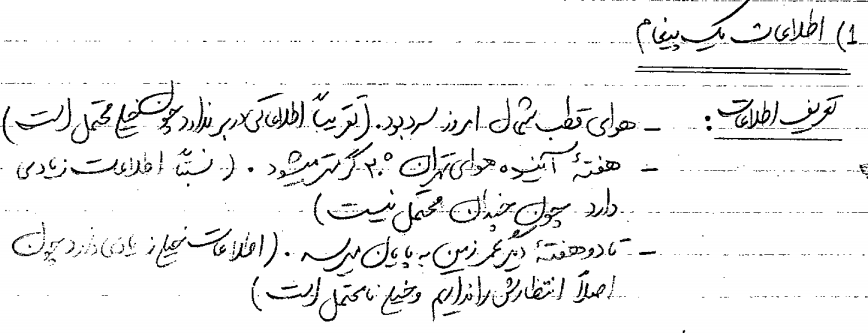 1) اطلاعات یک پیغام
تعریف اطلاعات : - هوای قطب شمال امروز سرد بود. (تقریباً اطلاعاتی در بر ندارد چون خیلی محتمل است)
- هفتهٔ آینده هوای تهران ۲۰° گرمتر میشود . ( نسبتاً اطلاعات زیادی
دارد چون چندان محتمل نیست)
- تا دو هفتهٔ دیگر عمر زمین به پایان میرسد . (اطلاعات خیلی زیادی دارد چون
اصلاً انتظارش را نداریم و خیلی نامحتمل است)